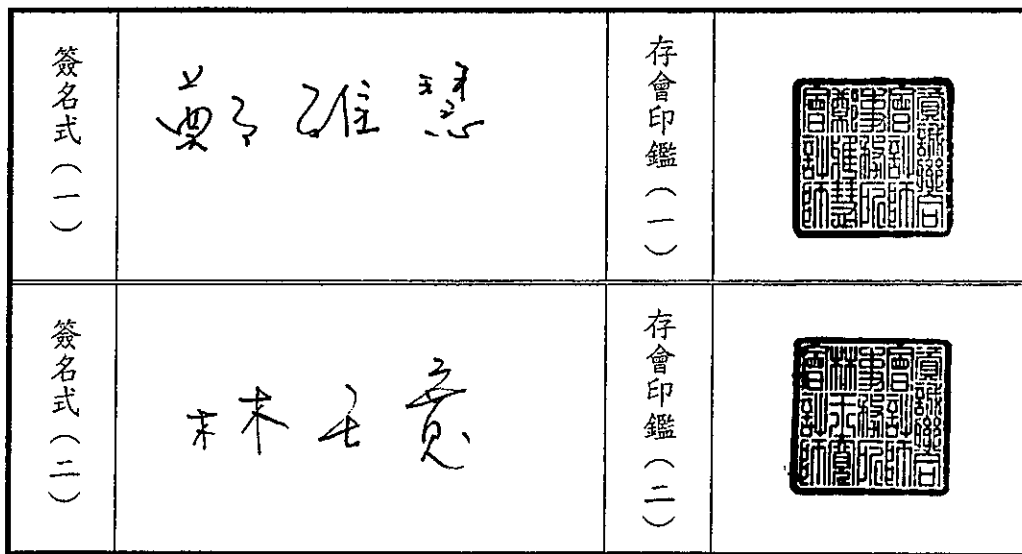 簽名式（一）
鄭雅慧
存會印鑑（一）
資誠聯合
會計師
事務所
鄭雅慧
會計師
簽名式（二）
林玉寬
存會印鑑（二）
資誠聯合
會計師
事務所
林玉寬
會計師